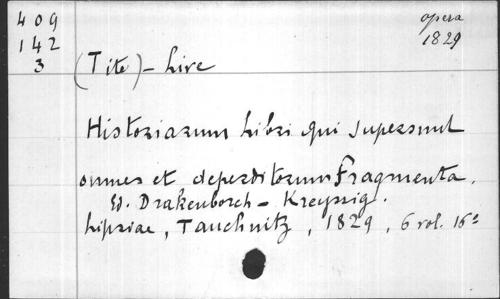 409
142
3
opera
1829
(Tite) - Live
Historiarum libri qui supersunt
omnes et deperditorum Fragmenta.
Ed. Drakenborch - Kreyssig.
Lipsiae, Tauchnitz, 1829, 6 vol. 16°